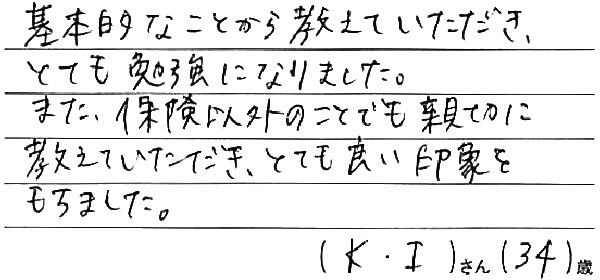 基本的なことから教えていただき、
とても勉強になりました。
また、保険以外のことでも親切に
教えていただき、とても良い印象を
もちました。
(K・I)さん(34)歳